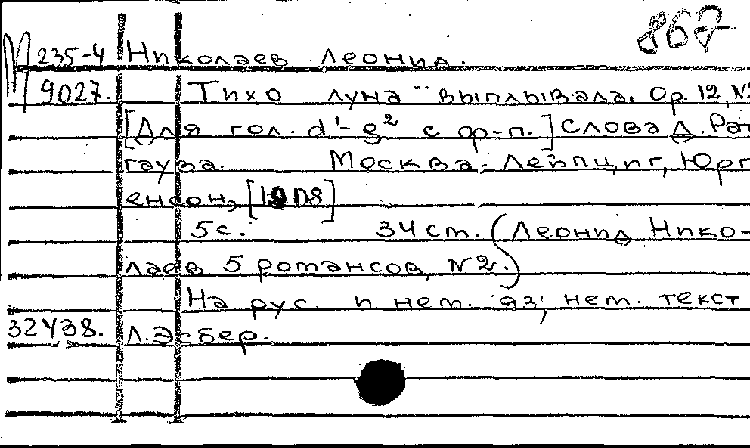 867
М 235-4 Николаев Леонид.
9027. Тихо луна выплывала. Ор. 12, №
[Для гол. d¹-g² с ф-п.] Слова Д. Рат
гауза. Москва-Лейпциг, Юрг
енсон,
5 с. 34 ст. (Леонид Нико-
лаев 5 романсов, №2.)
На рус. и нем. яз; нем. текст
32438. Л. Эсбер.